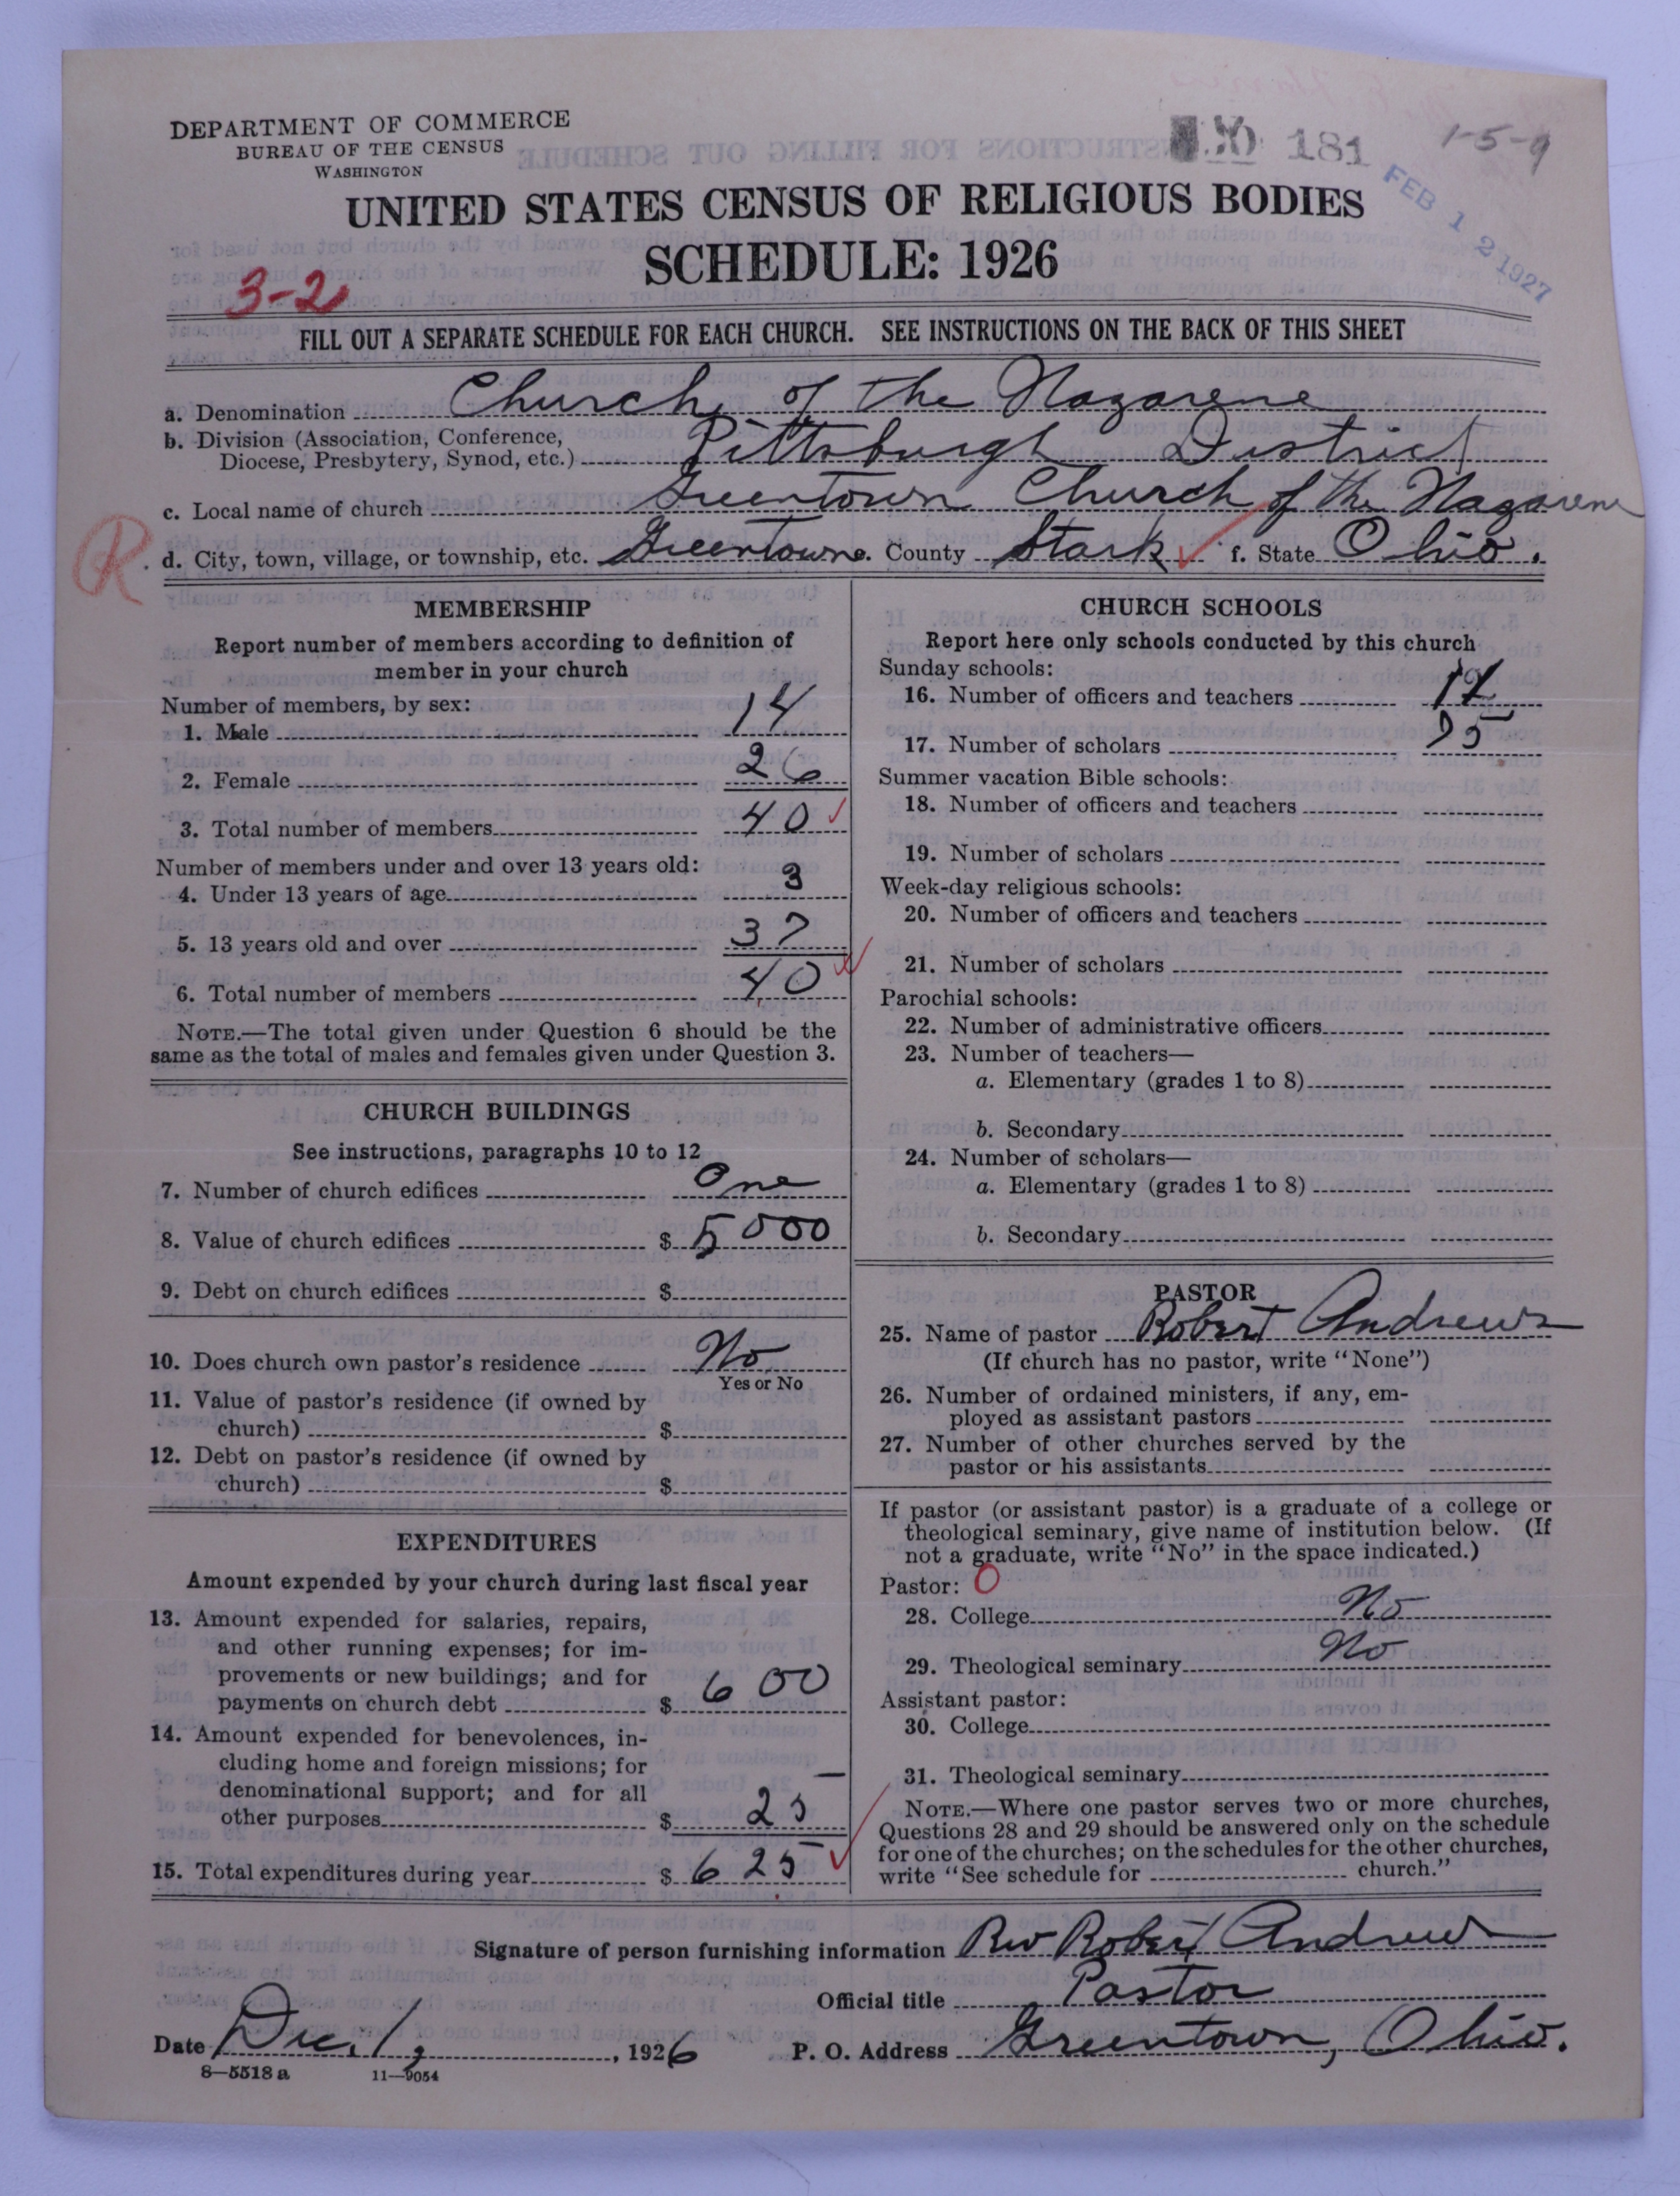 DEPARTMENT OF COMMERCE
BUREAU OF THE CENSUS
WASHINGTON
181
1-5-9
FEB 12 1927
UNITED STATES CENSUS OF RELIGIOUS BODIES
SCHEDULE: 1926
3-2
FILL OUT A SEPARATE SCHEDULE FOR EACH CHURCH. SEE INSTRUCTIONS ON THE BACK OF THIS SHEET
a. Denomination Church of the Nazarene
b. Division (Association, Conference,
Diocese, Presbytery, Synod, etc.) Pittsburgh District
c. Local name of church Greentown Church of the Nazarene
R
d. City, town, village, or township, etc. Greentown e. County Stark f. State Ohio.
MEMBERSHIP
Report number of members according to definition of
member in your church
Number of members, by sex:
1. Male 14
2. Female 26
3. Total number of members 40
Number of members under and over 13 years old:
4. Under 13 years of age 3
5. 13 years old and over 37
6. Total number of members 40
NOTE.—The total given under Question 6 should be the
same as the total of males and females given under Question 3.
CHURCH BUILDINGS
See instructions, paragraphs 10 to 12
7. Number of church edifices One
8. Value of church edifices $ 5000
9. Debt on church edifices $
10. Does church own pastor's residence No
Yes or No
11. Value of pastor's residence (if owned by
church) $
12. Debt on pastor's residence (if owned by
church) $
EXPENDITURES
Amount expended by your church during last fiscal year
13. Amount expended for salaries, repairs,
and other running expenses; for im-
provements or new buildings; and for
payments on church debt $ 600
14. Amount expended for benevolences, in-
cluding home and foreign missions; for
denominational support; and for all
other purposes $ 25
15. Total expenditures during year $ 625
CHURCH SCHOOLS
Report here only schools conducted by this church
Sunday schools:
16. Number of officers and teachers
17. Number of scholars
Summer vacation Bible schools:
18. Number of officers and teachers
19. Number of scholars
Week-day religious schools:
20. Number of officers and teachers
21. Number of scholars
Parochial schools:
22. Number of administrative officers
23. Number of teachers—
a. Elementary (grades 1 to 8)
b. Secondary
24. Number of scholars—
a. Elementary (grades 1 to 8)
b. Secondary
PASTOR
25. Name of pastor Robert Andrews
(If church has no pastor, write "None")
26. Number of ordained ministers, if any, em-
ployed as assistant pastors
27. Number of other churches served by the
pastor or his assistants
If pastor (or assistant pastor) is a graduate of a college or
theological seminary, give name of institution below. (If
not a graduate, write "No" in the space indicated.)
Pastor: 0
28. College No
29. Theological seminary No
Assistant pastor:
30. College
31. Theological seminary
NOTE.—Where one pastor serves two or more churches,
Questions 28 and 29 should be answered only on the schedule
for one of the churches; on the schedules for the other churches,
write "See schedule for church."
Signature of person furnishing information Rev Robert Andrews
Official title Pastor
Date Dec. 1, 1926 P. O. Address Greentown, Ohio.
8—5518 a 11—9054